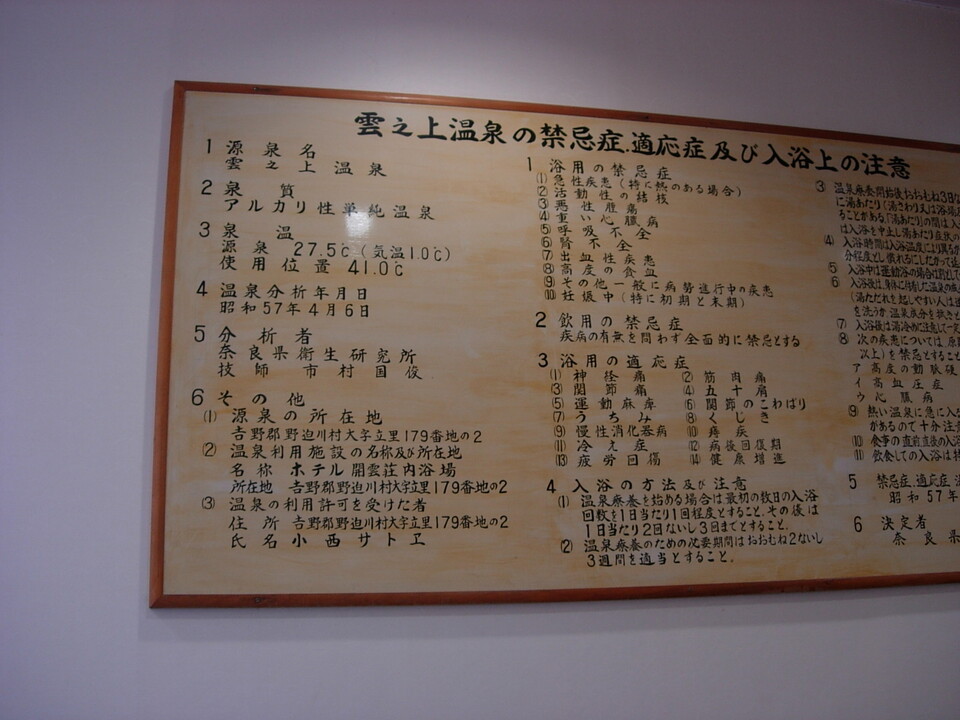 雲之上温泉の禁忌症.適応症及び入浴上の注意
1 源泉名
雲之上温泉
2 泉質
アルカリ性単純温泉
3 泉温
源泉 27.5℃(気温1.0℃)
使用位置 41.0℃
4 温泉分析年月日
昭和57年4月6日
5 分析者
奈良県衛生研究所
技師 市村国俊
6 その他
(1) 源泉の所在地
吉野郡野迫川村大字立里179番地の2
(2) 温泉利用施設の名称及び所在地
名称 ホテル開雲荘内浴場
所在地 吉野郡野迫川村大字立里179番地の2
(3) 温泉の利用許可を受けた者
住所 吉野郡野迫川村大字立里179番地の2
氏名 小西サトヱ
1 浴用の禁忌症
(1) 急性疾患(特に熱のある場合)
(2) 活動性の結核
(3) 悪性腫瘍
(4) 重い心臓病
(5) 呼吸不全
(6) 腎不全
(7) 出血性疾患
(8) 高度の貧血
(9) その他一般に病勢進行中の疾患
(10) 妊娠中(特に初期と末期)
2 飲用の禁忌症
疾病の有無を問わず全面的に禁忌とする
3 浴用の適応症
(1) 神経痛 (2) 筋肉痛
(3) 関節痛 (4) 五十肩
(5) 運動麻痺 (6) 関節のこわばり
(7) うちみ (8) くじき
(9) 慢性消化器病 (10) 痔疾
(11) 冷え症 (12) 病後回復期
(13) 疲労回復 (14) 健康増進
4 入浴の方法及び注意
(1) 温泉療養を始める場合は最初の数日の入浴
回数を1日当たり1回程度とすること.その後は
1日当たり2回ないし3回までとすること.
(2) 温泉療養のための必要期間はおおむね2ないし
3週間を適当とすること.
(3) 温泉療養開始後おおむね3日な
に湯あたり(湯さわり又は浴場
ることがある「湯あたり」の間は入
は入浴を中止し湯あたり症状の
(4) 入浴時間は入浴温度により異なるが
分程度とし慣れるにしたがって
(5) 入浴中は運動浴の場合は別として
(6) 入浴後は、身体に付着した温泉の
(湯ただれを起しやすい人は
を洗うか、温泉成分を拭き
(7) 入浴後は湯冷めに注意して一定
(8) 次の疾患については原
以上)を禁忌とすること
ア 高度の動脈硬
イ 高血圧症
ウ 心臓病
(9) 熱い温泉に急に入
があるので十分注意
(10) 食事の直前直後の入浴
(11) 飲食しての入浴は特
5 禁忌症、適応症
昭和57年
6 決定者
奈良県